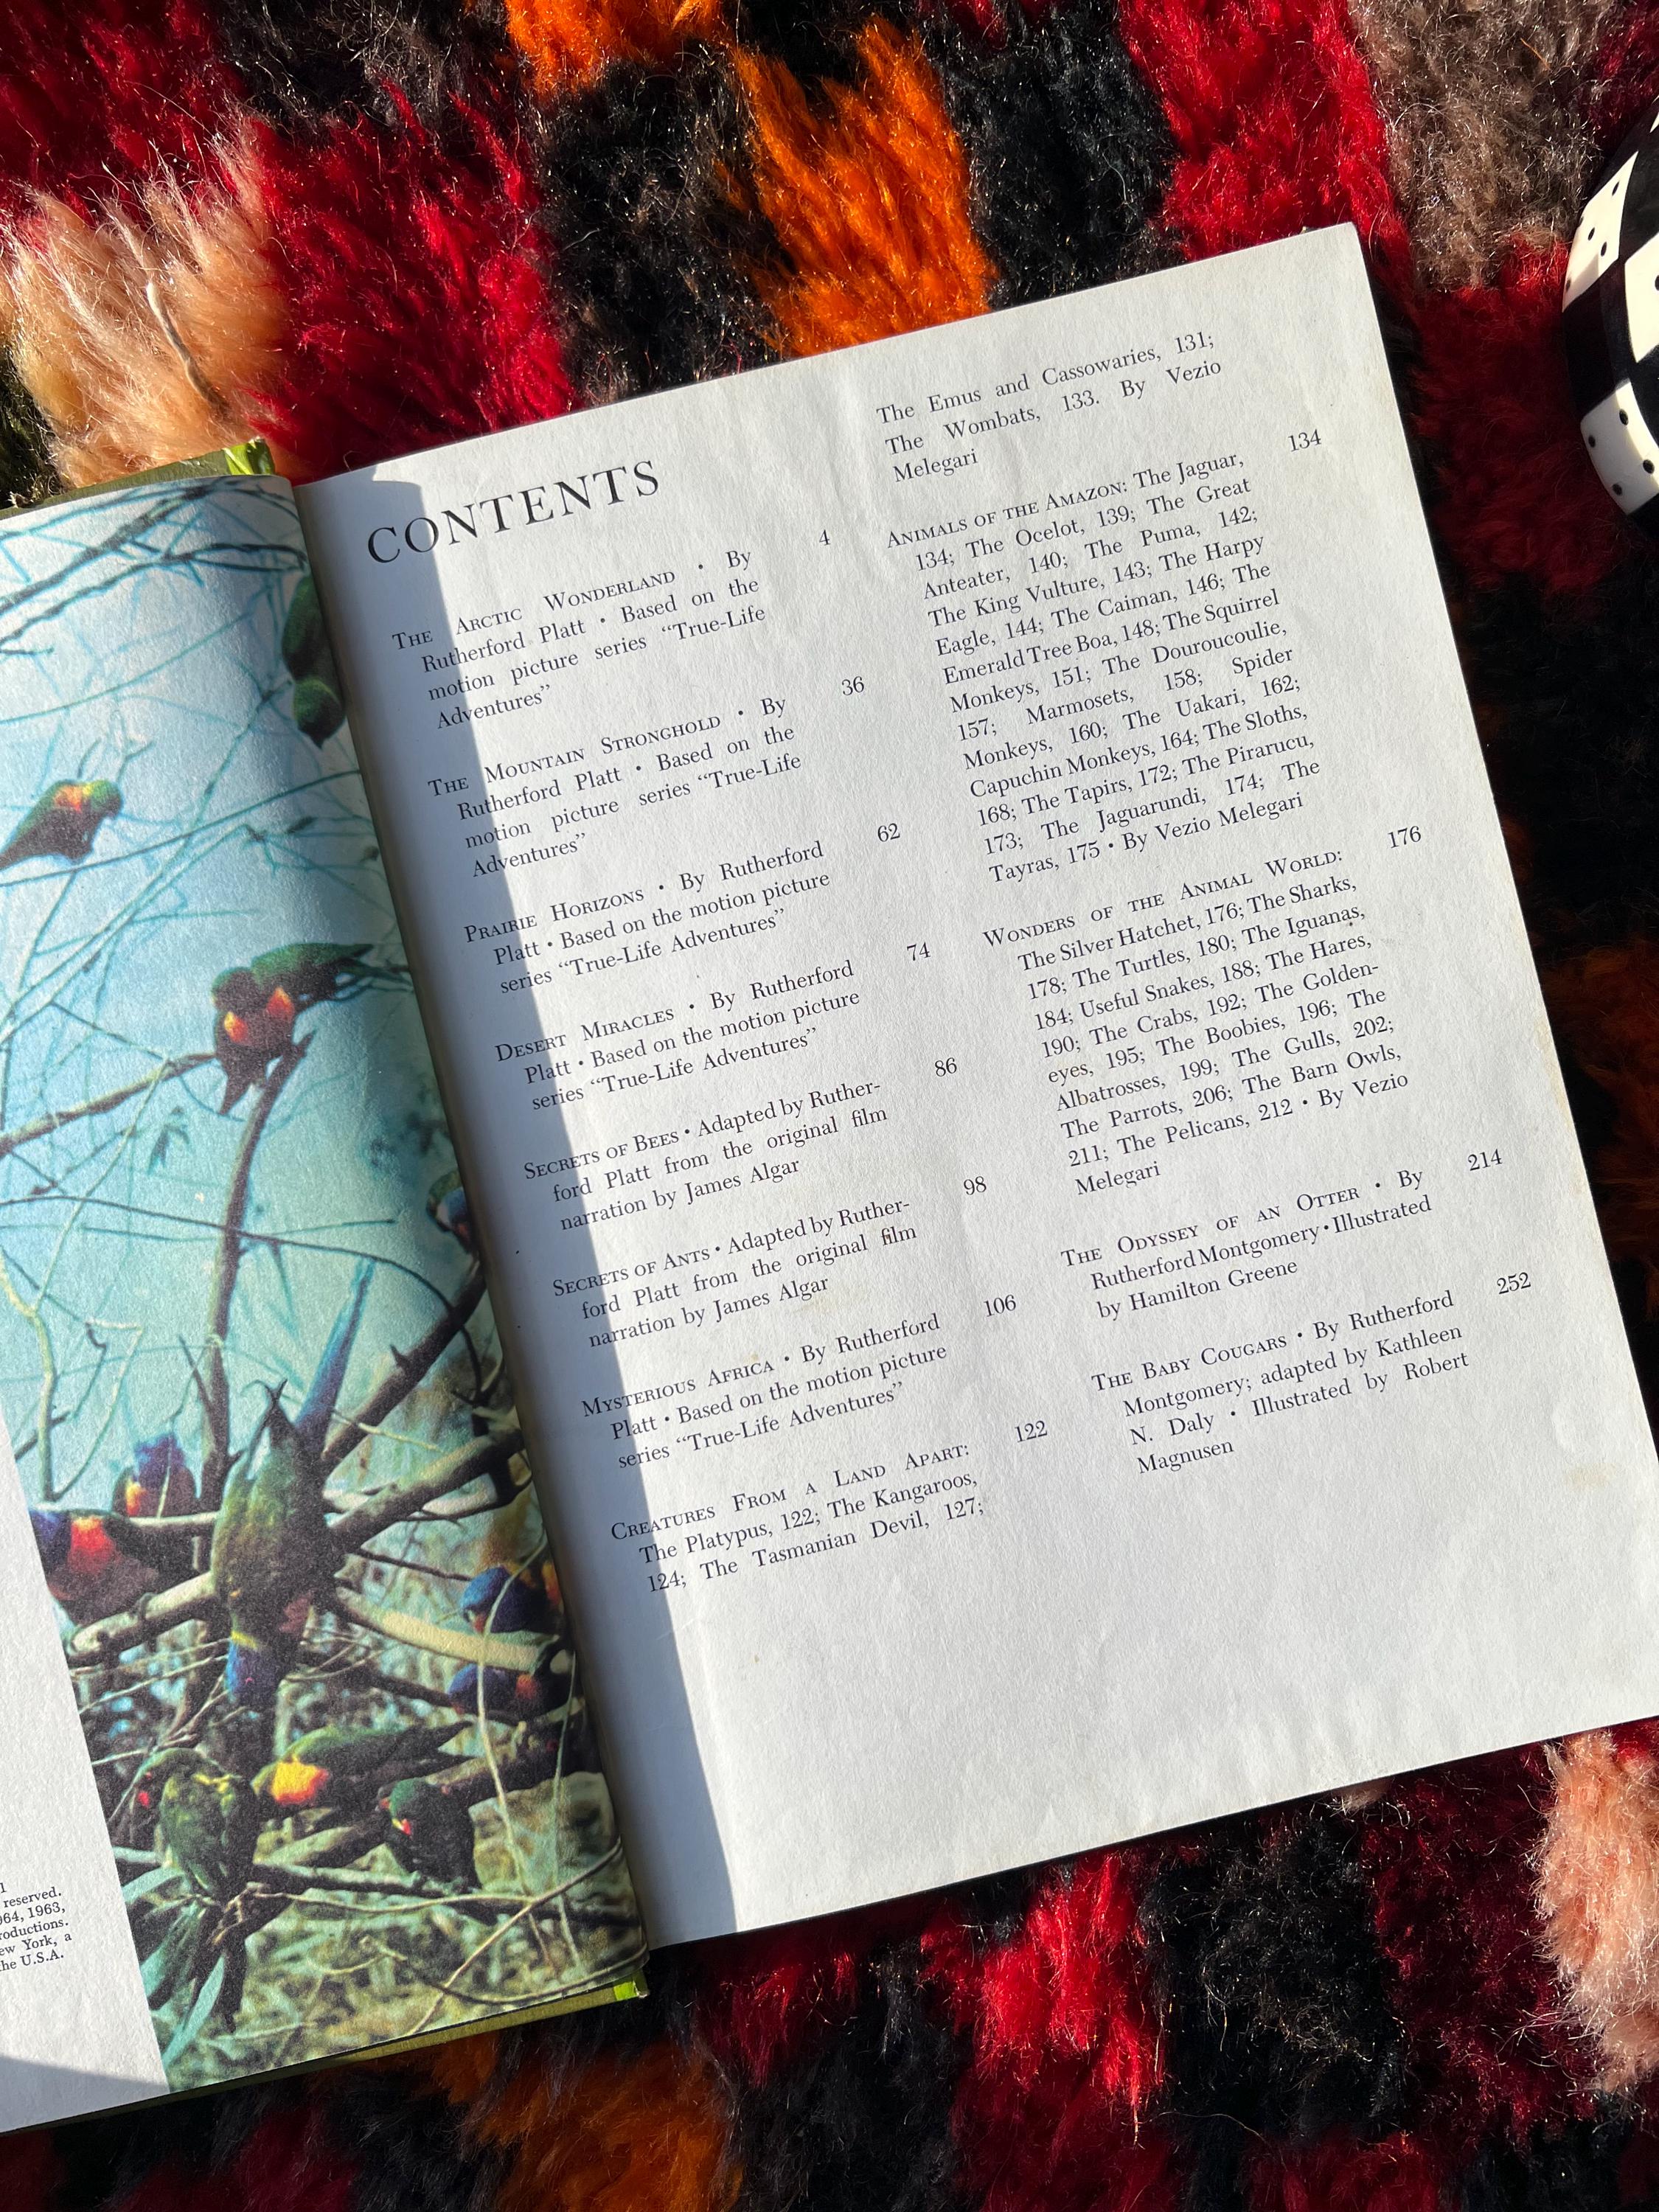 1
reserved.
64, 1963,
roductions.
ew York, a
the U.S.A.
CONTENTS
THE ARCTIC WONDERLAND • By 4
Rutherford Platt • Based on the
motion picture series “True-Life
Adventures”
THE MOUNTAIN STRONGHOLD • By 36
Rutherford Platt • Based on the
motion picture series “True-Life
Adventures”
PRAIRIE HORIZONS • By Rutherford 62
Platt • Based on the motion picture
series “True-Life Adventures”
DESERT MIRACLES • By Rutherford 74
Platt • Based on the motion picture
series “True-Life Adventures”
SECRETS OF BEES • Adapted by Ruther- 86
ford Platt from the original film
narration by James Algar
SECRETS OF ANTS • Adapted by Ruther- 98
ford Platt from the original film
narration by James Algar
MYSTERIOUS AFRICA • By Rutherford 106
Platt • Based on the motion picture
series “True-Life Adventures”
CREATURES FROM A LAND APART: 122
The Platypus, 122; The Kangaroos,
124; The Tasmanian Devil, 127;
The Emus and Cassowaries, 131;
The Wombats, 133. By Vezio
Melegari
ANIMALS OF THE AMAZON: The Jaguar, 134
134; The Ocelot, 139; The Great
Anteater, 140; The Puma, 142;
The King Vulture, 143; The Harpy
Eagle, 144; The Caiman, 146; The
Emerald Tree Boa, 148; The Squirrel
Monkeys, 151; The Douroucoulie,
157; Marmosets, 158; Spider
Monkeys, 160; The Uakari, 162;
Capuchin Monkeys, 164; The Sloths,
168; The Tapirs, 172; The Pirarucu,
173; The Jaguarundi, 174; The
Tayras, 175 • By Vezio Melegari
WONDERS OF THE ANIMAL WORLD: 176
The Silver Hatchet, 176; The Sharks,
178; The Turtles, 180; The Iguanas,
184; Useful Snakes, 188; The Hares,
190; The Crabs, 192; The Golden-
eyes, 195; The Boobies, 196; The
Albatrosses, 199; The Gulls, 202;
The Parrots, 206; The Barn Owls,
211; The Pelicans, 212 • By Vezio
Melegari
THE ODYSSEY OF AN OTTER • By 214
Rutherford Montgomery • Illustrated
by Hamilton Greene
THE BABY COUGARS • By Rutherford 252
Montgomery; adapted by Kathleen
N. Daly • Illustrated by Robert
Magnusen